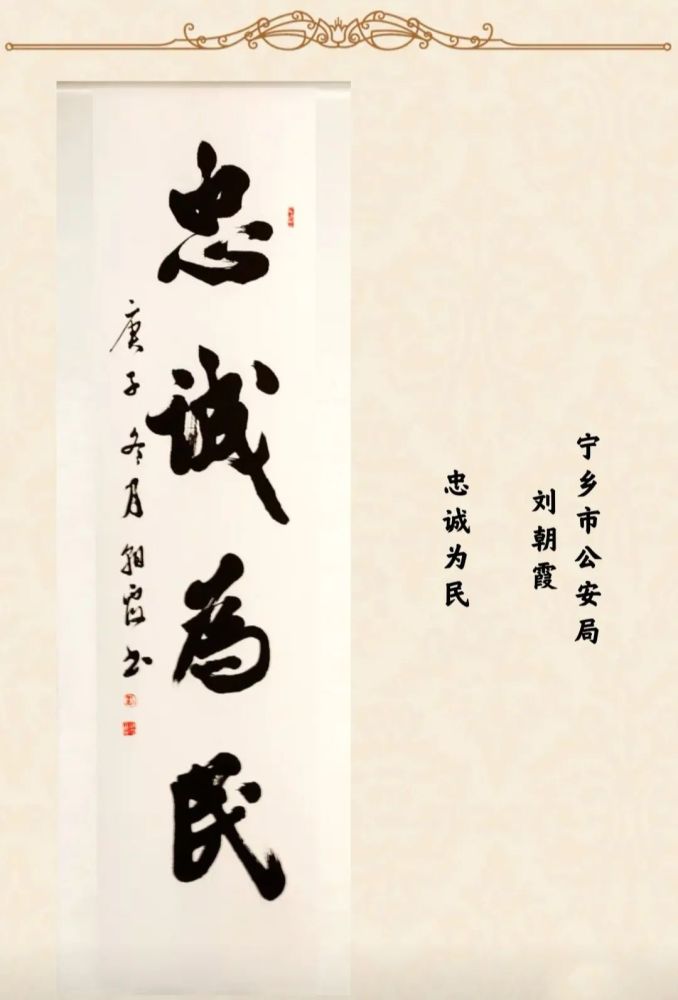 宁乡市公安局
刘朝霞
忠诚为民
忠诚為民
庚子冬月朝霞书